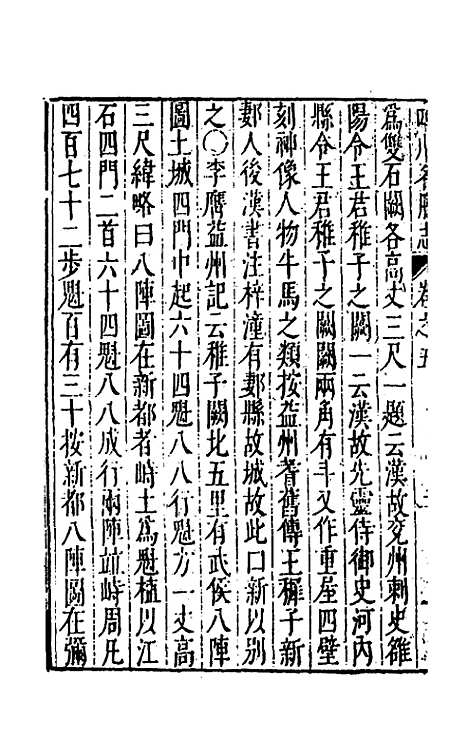 蜀州名勝志 卷之五
爲雙石闕各高丈三尺一題云漢故兗州刺史雒
陽令王君稚子之闕一云漢故先靈侍御史河內
縣令王君稚子之闕闕兩角有斗又作重屋四壁
刻神像人物牛馬之類按益州耆舊傳王稚子新
郪人後漢書注梓潼有郪縣故城故此口新以別
之○李膺益州記云稚子闕北五里有武侯八陣
圖土城四門中起六十四魁八八行魁方一丈高
三尺緯略曰八陣圖在新都者峙土爲魁植以江
石四門二首六十四魁八八成行兩陣竝峙周凡
四百七十二步魁百有三十按新都八陣圖在彌